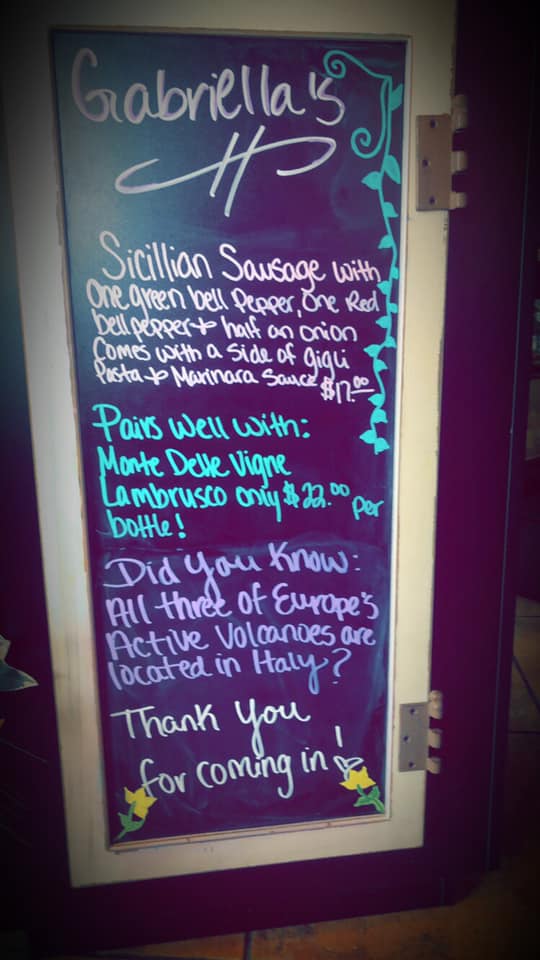 Gabriella's
Sicillian Sausage with
One green bell Pepper, One Red
bell pepper + half an onion
Comes with a side of gigli
Pasta + Marinara Sauce $17.00
Pairs Well with:
Monte Delle Vigne
Lambrusco only $22.00 per
bottle!
Did you Know:
All three of Europe's
Active Volcanoes are
located in Italy?
Thank You
for coming in!